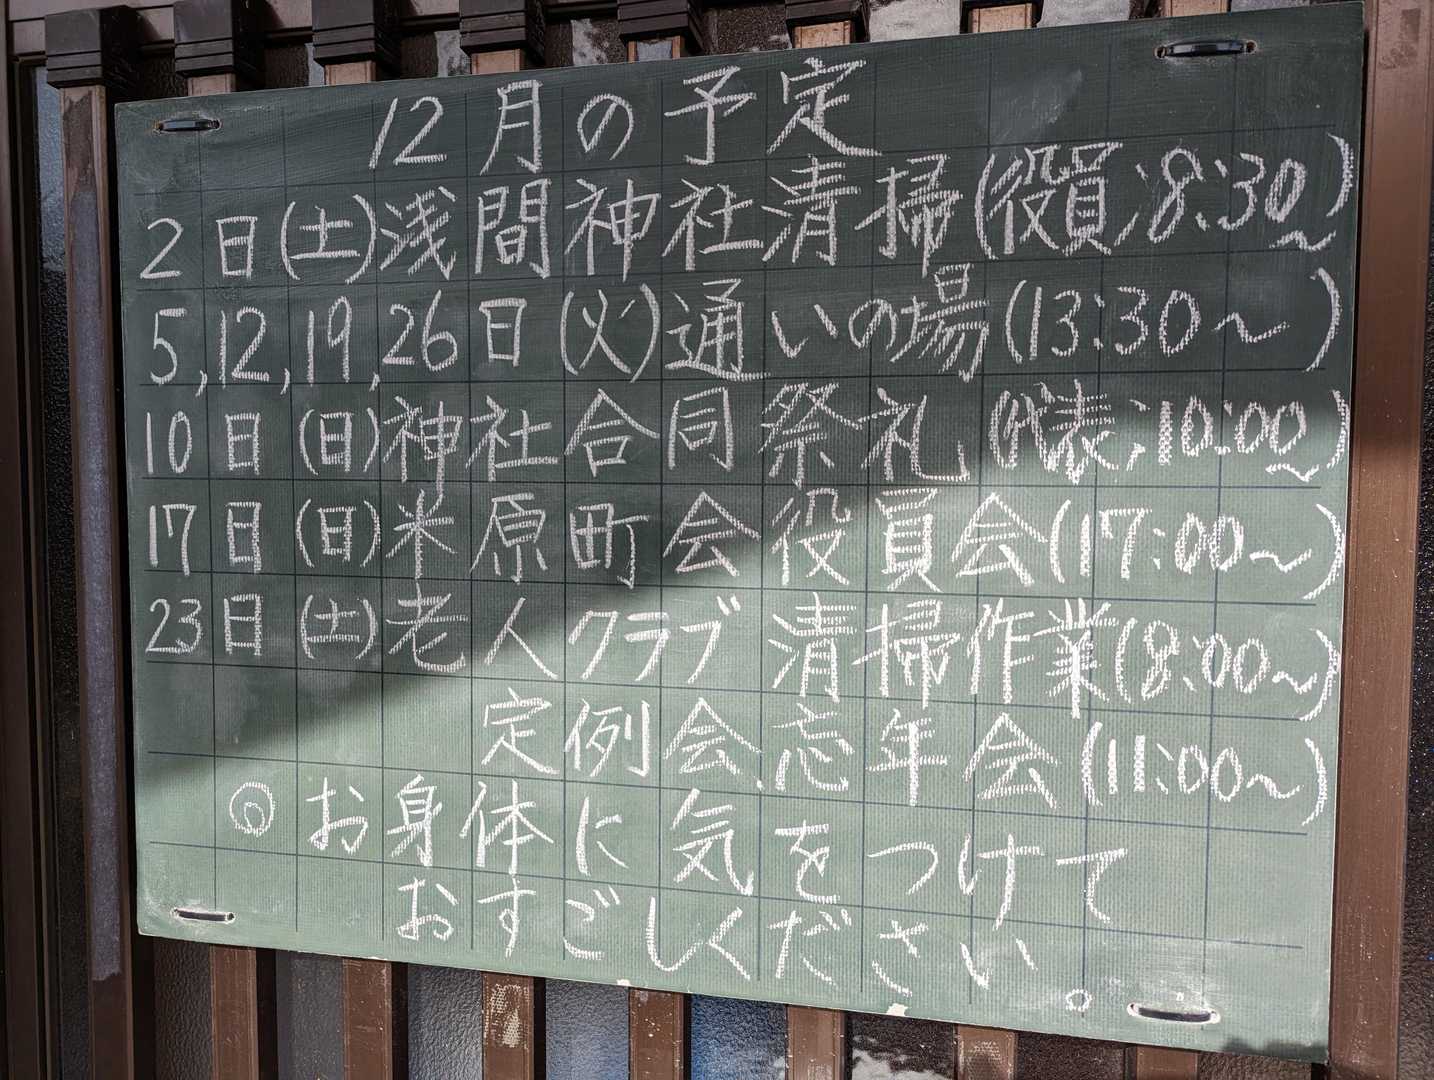 12月の予定
2日(土)浅間神社清掃(役員;8:30〜)
5,12,19,26日(火)通いの場(13:30〜)
10日(日)神社合同祭礼(代表;10:00〜)
17日(日)米原町会役員会(17:00〜)
23日(土)老人クラブ清掃作業(8:00〜)
定例会、忘年会(11:00〜)
◎お身体に気をつけて
おすごしください。